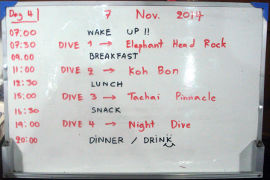 Day 4 7 Nov. 2014
07:00 WAKE UP!!
07:30 DIVE 1 → Elephant Head Rock
09:00 BREAKFAST
11:00 DIVE 2 → Koh Bon
12:30 LUNCH
15:00 DIVE 3 → Tachai Pinnacle
16:30 SNACK
19:00 DIVE 4 → Night Dive
20:00 DINNER / DRINK